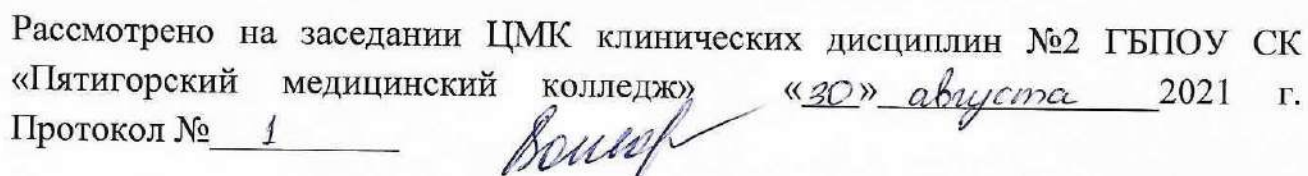 Рассмотрено на заседании ЦМК клинических дисциплин №2 ГБПОУ СК
«Пятигорский медицинский колледж» «30» августа 2021 г.
Протокол № 1